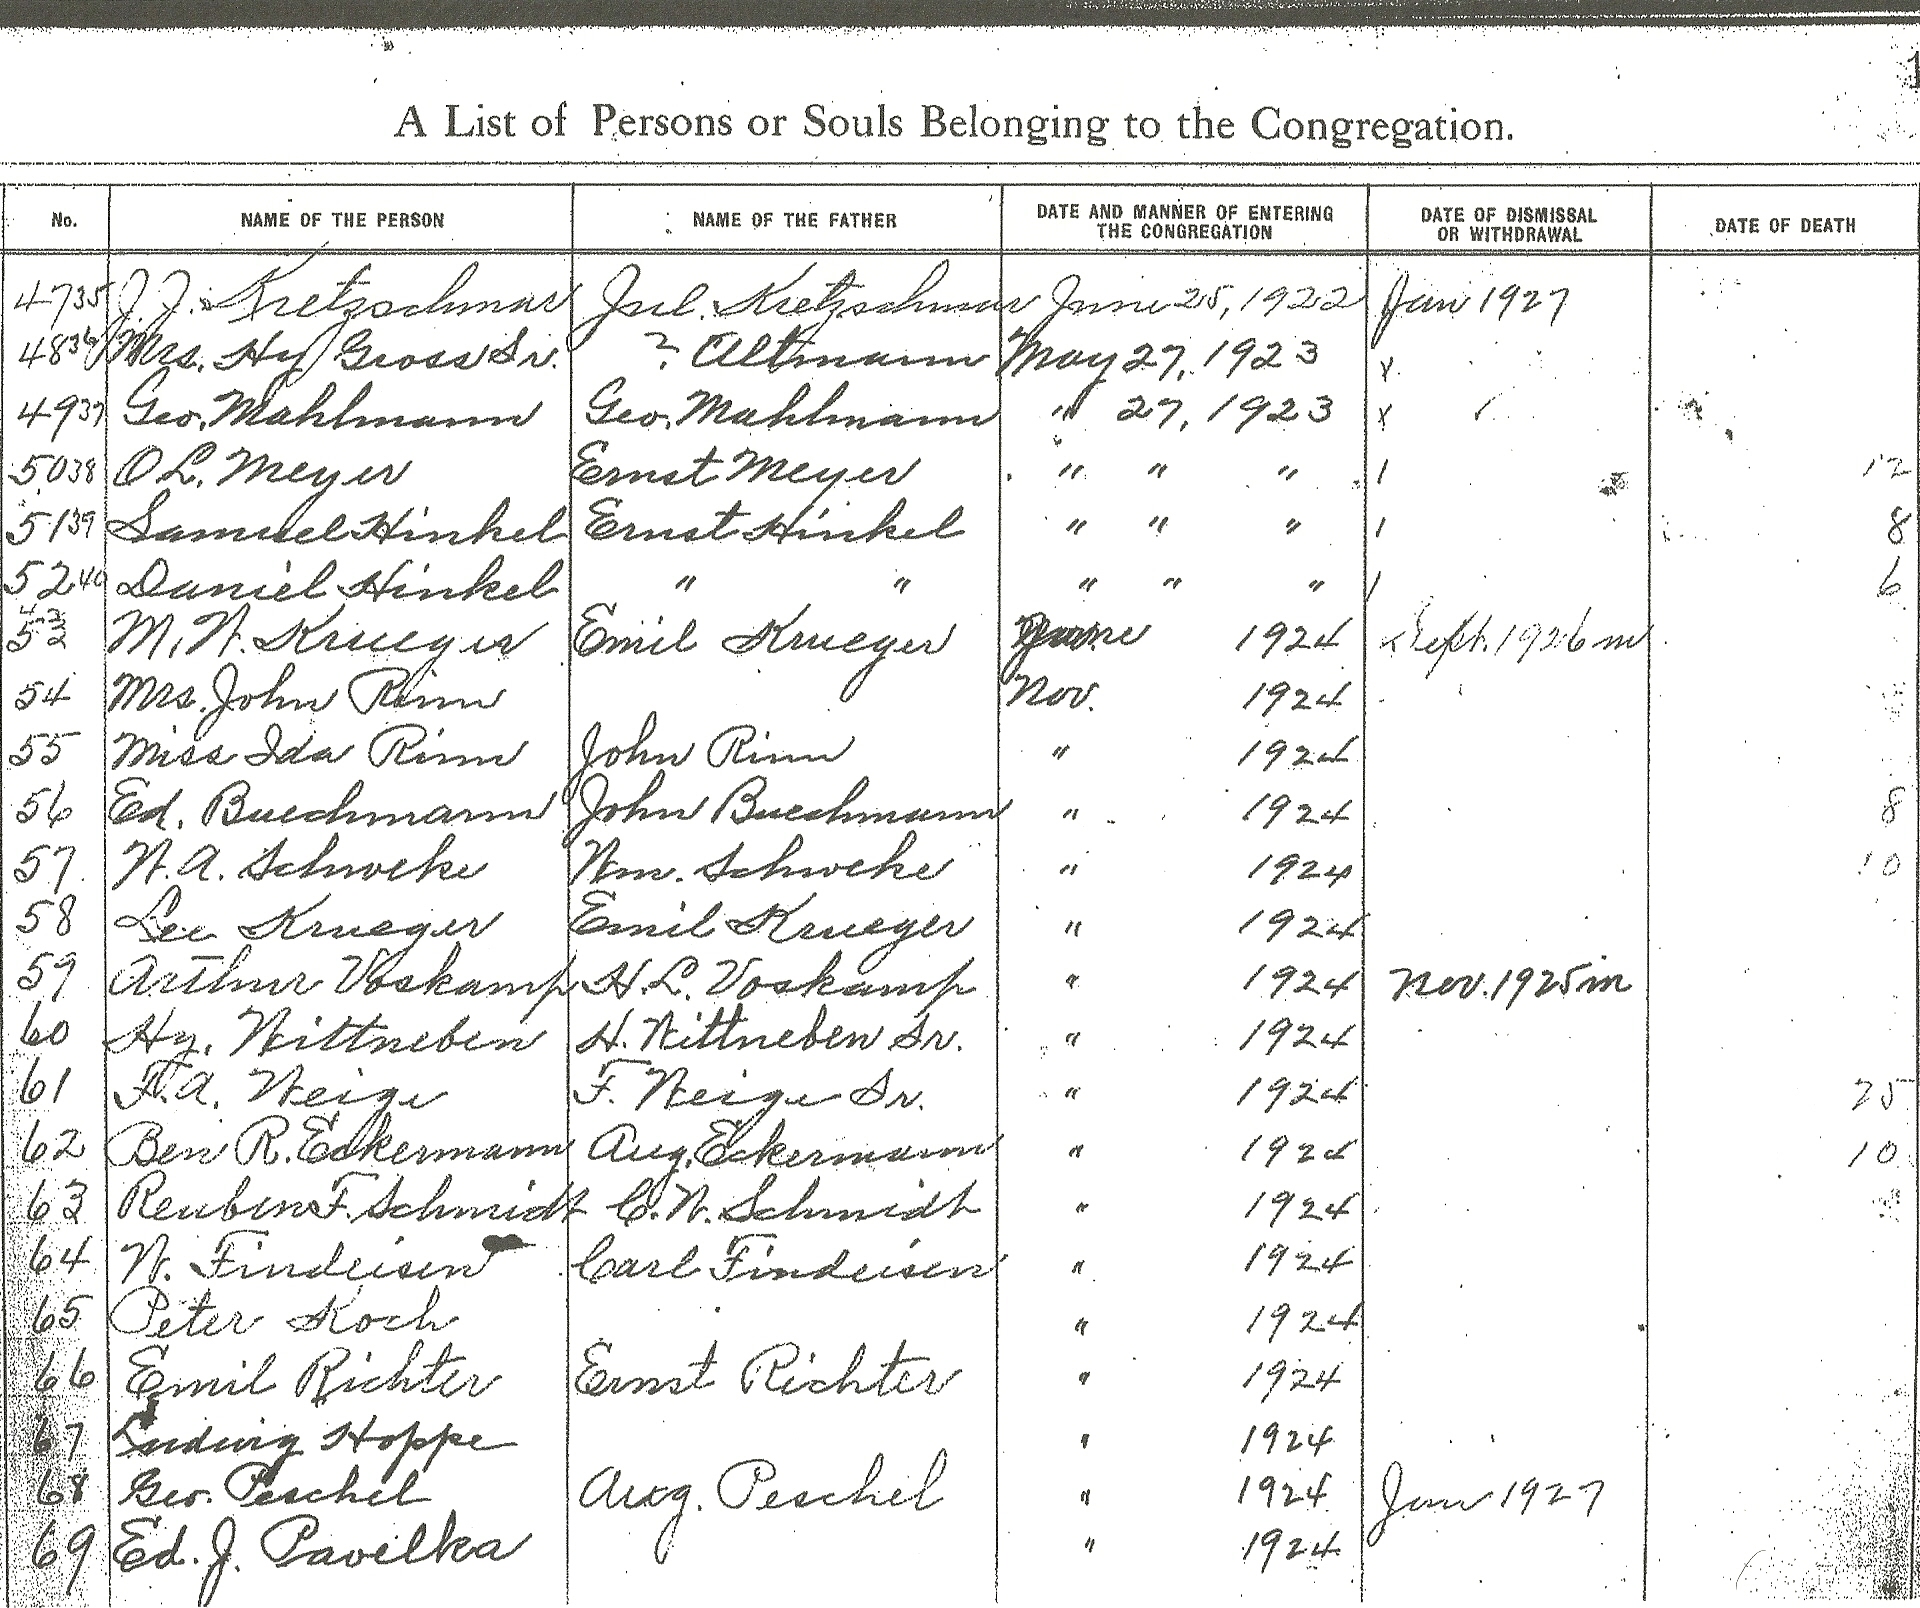 A List of Persons or Souls Belonging to the Congregation.
No. NAME OF THE PERSON NAME OF THE FATHER DATE AND MANNER OF ENTERING THE CONGREGATION DATE OF DISMISSAL OR WITHDRAWAL DATE OF DEATH
47 35 J. J. Kretzschmar Jul. Kretzschmar June 25, 1922 Jan 1927
48 36 Mrs. Hy Gross Sr. ? Altmann May 27, 1923 x
49 37 Geo. Mahlmann Geo. Mahlmann " 27, 1923 x
50 38 O. L. Meyer Ernst Meyer " " " 1 12
51 39 Samuel Hinkel Ernst Hinkel " " " 1 8
52 40 Daniel Hinkel " " " " " 1 6
M. W. Krueger Emil Krueger June 1924 Sept. 1926 m
54 Mrs. John Rinn Nov. 1924
55 Miss Ida Rinn John Rinn " 1924
56 Ed. Buechmann John Buechmann " 1924 8
57 W. A. Schweke Wm. Schweke " 1924 10
58 Lee Krueger Emil Krueger " 1924
59 Arthur Voskamp H. L. Voskamp " 1924 Nov. 1925 m
60 Hy. Wittneben H. Wittneben Sr. " 1924
61 F. A. Weige F. Weige Sr. " 1924 25
62 Ben R. Eckermann Aug. Eckermann " 1924 10
63 Reuben F. Schmidt C. W. Schmidt " 1924
64 W. Findeisen Carl Findeisen " 1924
65 Peter Koch " 1924
66 Emil Richter Ernst Richter " 1924
67 Ludwig Hoppe " 1924
68 Geo. Peschel Aug. Peschel " 1924 Jan 1927
69 Ed. J. Pavelka " 1924